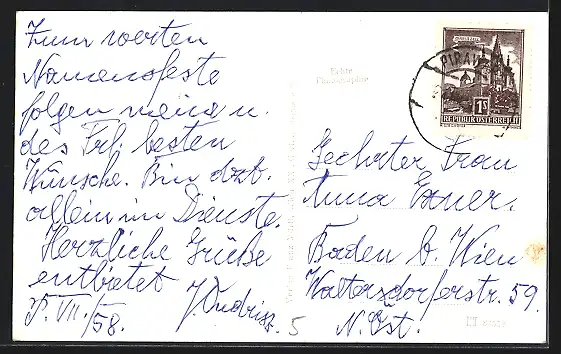 Zum werten
Namensfeste
folgen meine u.
des Frl. besten
Wünsche. Bin dzt.
allein im Dienste.
Herzliche Grüße
entbietet
VII./58.
5
Echte
Photographie
PIRAW
1S
REPUBLIK ÖSTERREICH
Geehrter Frau
Anna Exner.
Baden b. Wien
Waltersdorferstr. 59.
N. Öst.